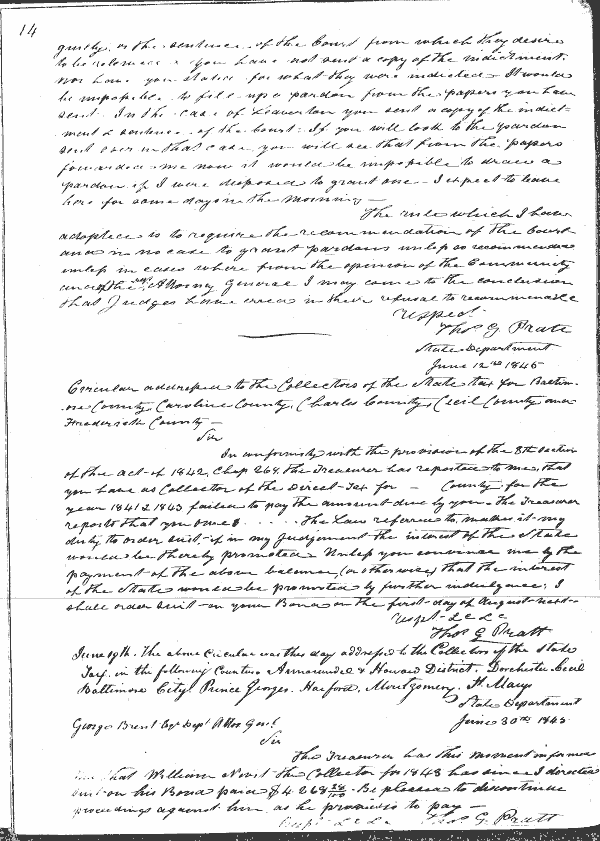 14
guilty, or the sentence of the Court from which they desire
to be released & you have not sent a copy of the indictment.
Nor have you stated for what they were indicted. It would
be impossible to fill up a pardon from the papers you have
sent. In the case of Leaverton you sent a copy of the indict-
ment & sentence of the Court: If you will look to the pardon
sent over in that case, you will see that from the papers
forwarded me now it would be impossible to draw a
pardon if I were disposed to grant one - I expect to leave
here for some days in the morning -
The rule which I have
adopted is to require the recommendation of the Court
and in no case to grant pardons unless so recommended
unless in cases where from the opinion of the Community
and of the Attorney General I may come to the conclusion
that Judges have erred in their refusal to recommend
respect
Thos G. Pratt
State Department
June 12th 1845
Circular addressed to the Collectors of the State tax for Baltim-
ore County, Caroline County, Charles County, Cecil County and
Frederick County -
Sir
In conformity with the provision of the 8th section
of the act of 1842, Chap 269, the Treasurer has reported to me, that
you have as Collector of the Direct Tax for - County for the
year 1841 2 1843 failed to pay the amount due by you - the Treasurer
reports that you owe $ . . . . . The Law referred to, makes it my
duty to order suit - if in my judgement the interest of the State
would be thereby promoted. Unless you convince me by the
payment of the above balance, (or otherwise) that the interest
of the State would be promoted by further indulgence; I
shall order suit on your Bond on the first day of August next -
respt. &c &c
Thos G Pratt
June 19th. The above Circular was this day addressed to the Collectors of the State
Tax, in the following Counties Annarundel & Howard District. Dorchester Cecil
Baltimore City Prince Georges. Harford, Montgomery, St Marys
State Department
June 30th 1845
George Brent Eqr Dept Attor Genl
Sir
The Treasurer has this moment informed
that William Norris the Collector for 1843 has since I directed
suit on his Bond paid $ 4268 Be pleased to discontinue
proceedings against him as he promises to pay -
Respt &c &c Thos G. Pratt